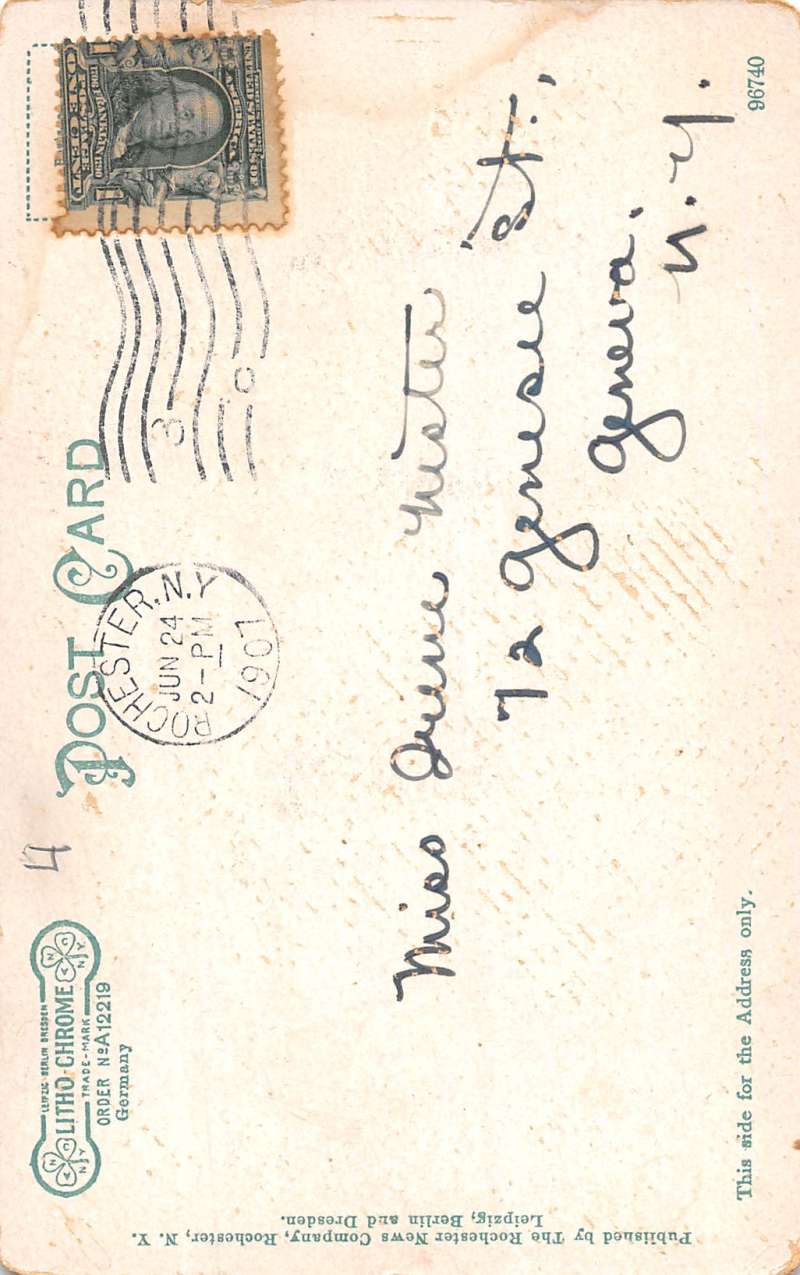 POST CARD
LEIPZIG BERLIN DRESDEN
LITHO-CHROME
TRADE-MARK
ORDER No A12219
Germany
4
ROCHESTER, N.Y
JUN 24
2-PM
1907
3 C
ONE CENT
1
1
Miss Irene Nester
72 Genesee St.,
Geneva,
N.Y.
This side for the Address only.
96740
Published by The Rochester News Company, Rochester, N. Y.
Leipzig, Berlin and Dresden.